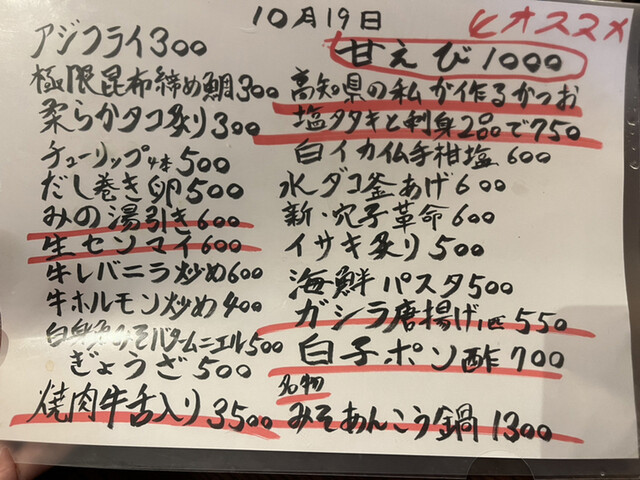 10月19日
オススメ
アジフライ300
極限昆布締め鯛300
柔らかタコ炙り300
チューリップ4本500
だし巻き卵500
みの湯引き600
生センマイ600
牛レバニラ炒め600
牛ホルモン炒め400
白身魚みそバタームニエル500
ぎょうざ500
焼肉牛舌入り3500
甘えび1000
高知県の私が作るかつお
塩タタキと刺身2つで750
白イカ仏手柑塩600
水ダコ釜あげ600
新・穴子革命600
イサキ炙り500
海鮮パスタ500
ガシラ唐揚げ1匹550
白子ポン酢700
名物
みそあんこう鍋1300